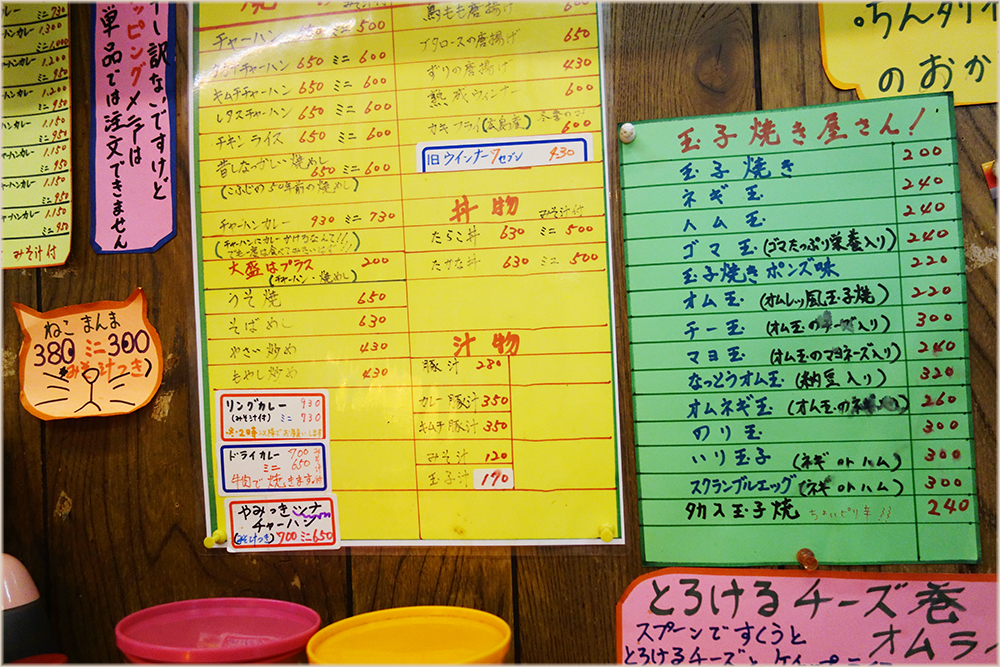 チャーハンカレー 730
1.300
ミニ 1.000
チャーハンカレー 1.200
ミニ 950
ハンカレー 1.200
ミニ 950
ハンカレー 1.150
ミニ 950
ハンカレー 1.150
ミニ 950
ハンカレー 1.150
ミニ 950
チャーハンカレー 1.150
ミニ 950
みそ汁付
し訳ないですけど
ッピングメニューは
単品では注文できません
ねこまんま
380 ミニ300
(みそ汁つき)
チャーハン 600 ミニ 500
チャーハン 650 ミニ 600
キムチチャーハン 650 ミニ 600
レタスチャーハン 650 ミニ 600
チキンライス 650 ミニ 500
昔しなつかしい焼めし 650 ミニ 600
(こふじの50年前の焼めし)
チャーハンカレー 930 ミニ 730
(チャーハンにカレーかけちゃうなんて!!
でも一度は食べてみたいはず)
大盛はプラス 200
(チャーハン・焼めし)
うそ焼 650
そばめし 630
やさい炒め 430
もやし炒め 430
リングカレー 930
(みそ汁付) ミニ 730
ドライカレー 700
ミニ 650
牛肉で焼きます
やみつきツナ
チャーハン
(みそつき) 700 ミニ650
鳥もも唐揚げ 650
ブタロースの唐揚げ 650
ずりの唐揚げ 430
熟成ウィンナー 600
カキフライ(広島産) 600
旧ウインナー7セブン 430
丼物 みそ汁付
たらこ丼 630 ミニ 500
たかな丼 630 ミニ 500
汁物
豚汁 280
カレー豚汁 350
キムチ豚汁 350
みそ汁 120
玉子汁 170
のおか
玉子焼き屋さん!
玉子焼き 200
ネギ玉 240
ハム玉 240
ゴマ玉 (ゴマたっぷり栄養入り) 240
玉子焼きポンズ味 220
オム玉 (オムレツ風玉子焼) 220
チー玉 (オム玉のチーズ入り) 300
マヨ玉 (オム玉のマヨネーズ入り) 240
なっとうオム玉 (納豆入り) 320
オムネギ玉 (オム玉のネギ入り) 260
のり玉 300
いり玉子 (ネギorハム) 300
スクランブルエッグ (ネギorハム) 300
タカ入玉子焼 ちょいピリ辛!! 240
とろけるチーズ巻
オムラ
スプーンですくうと
とろけるチーズと